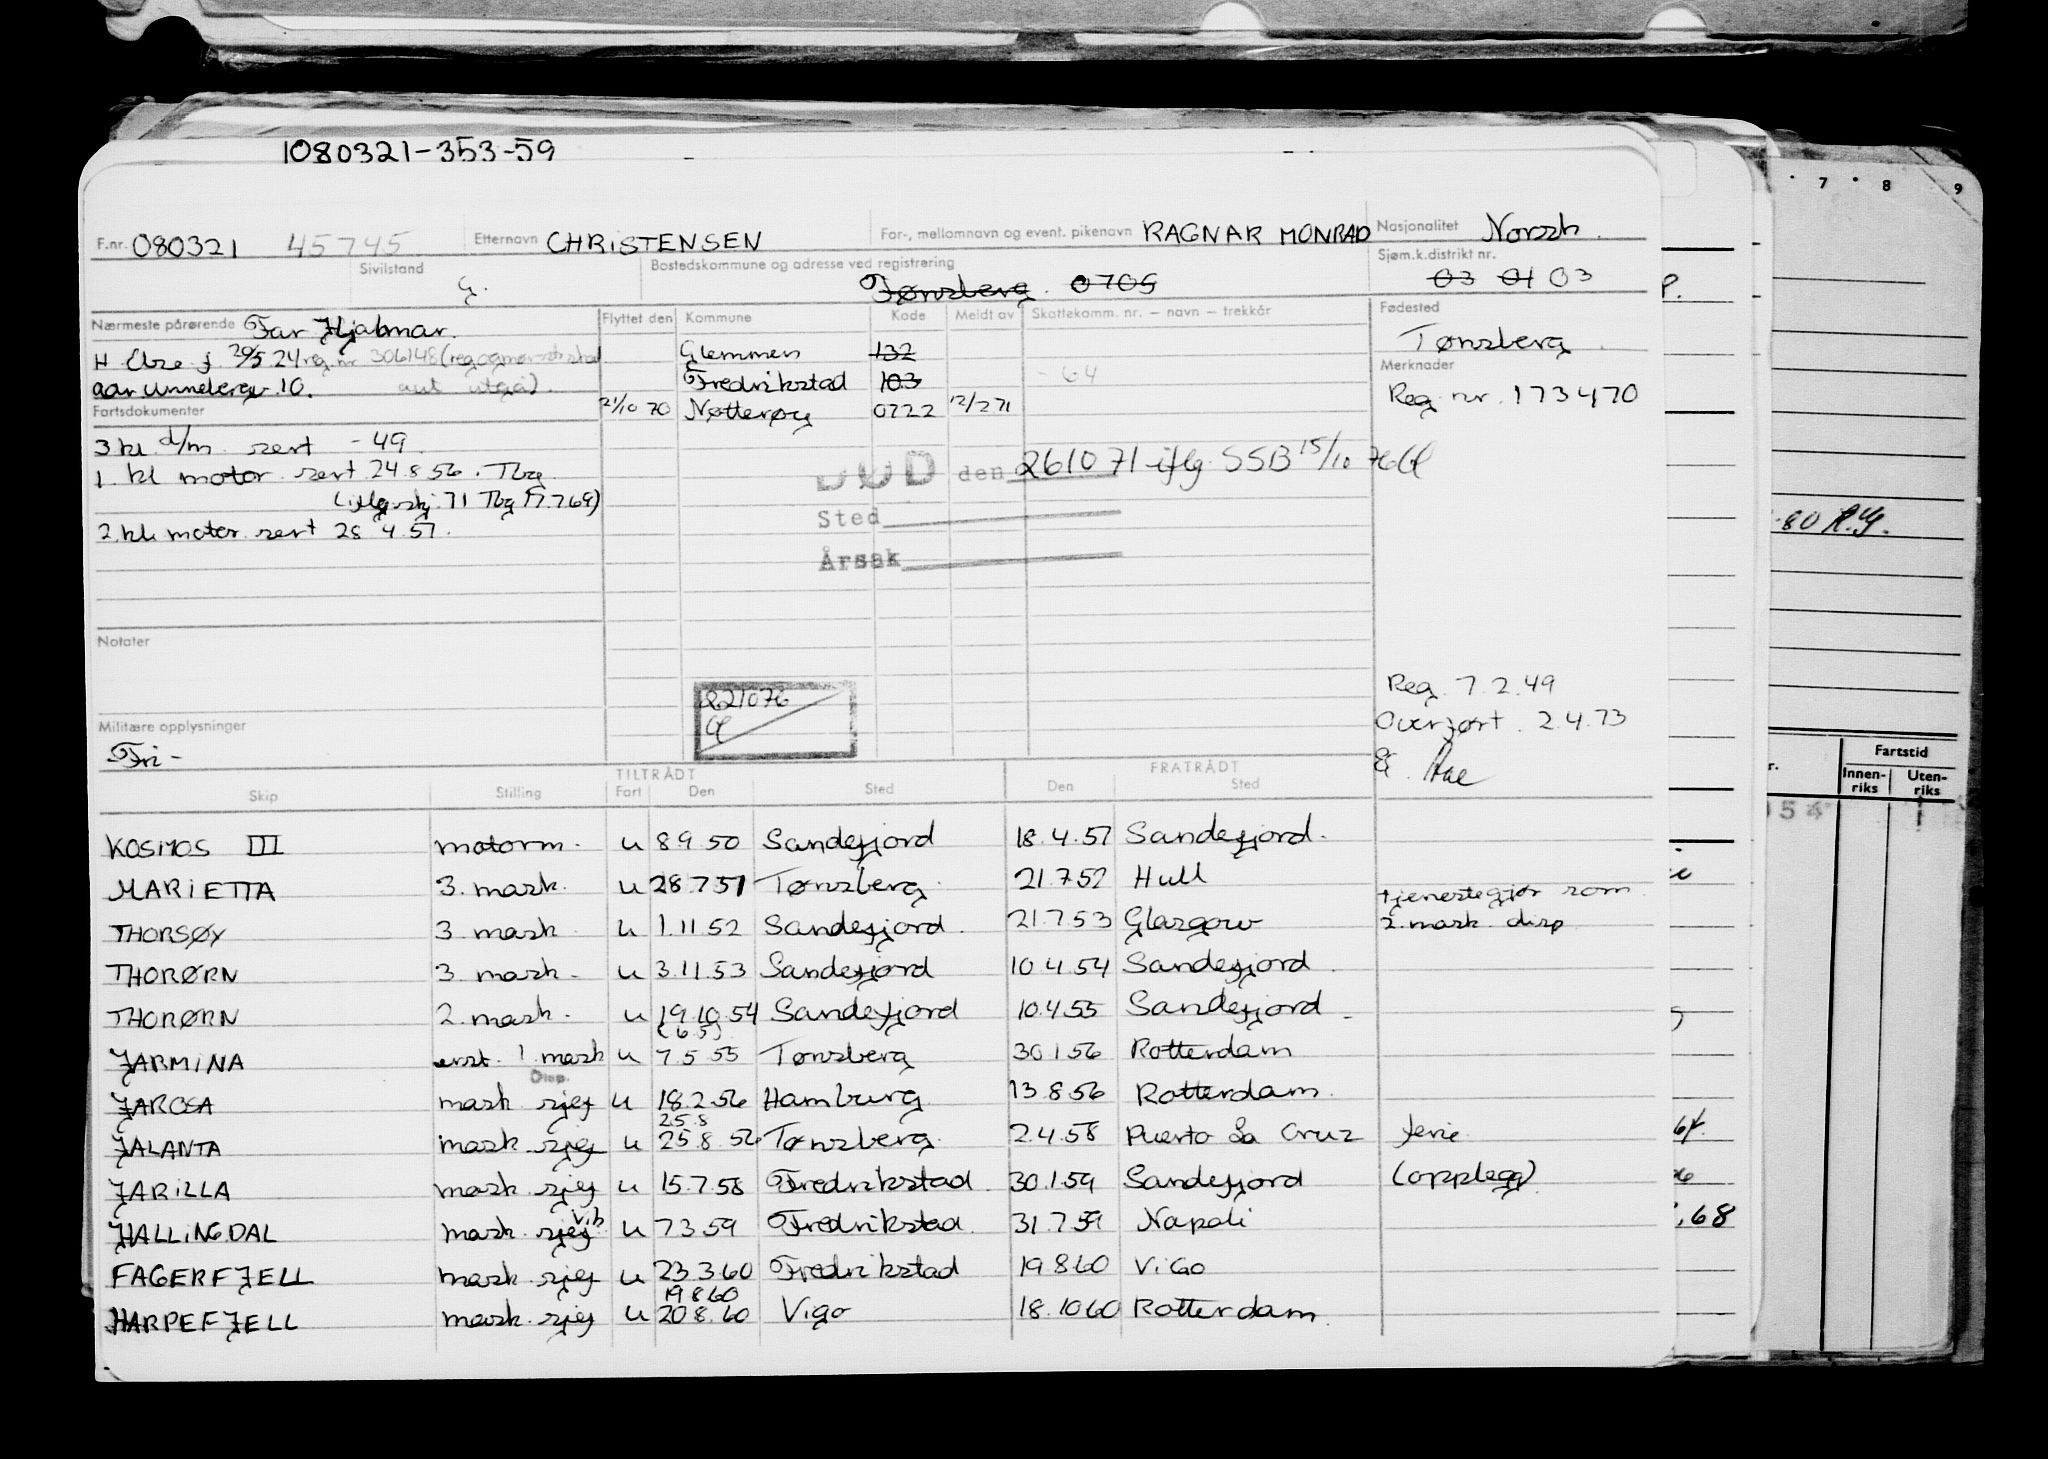 1080321-353-59
F.nr. 080321 45745 Etternavn CHRISTENSEN For-, mellomnavn og event. pikenavn RAGNAR MONRAD Nasjonalitet Norsk.
Sivilstand G. Bostedskommune og adresse ved registrering Tønsberg. 0705 Sjøm.k.distrikt nr. 03 01 03
Nærmeste pårørende Far Hjalmar. Flyttet den Kommune Kode Meldt av Skattekomm. nr. – navn – trekkår Fødested
Tønsberg.
H Else f. 20/5 24 reg. nr 306148 Glemmen 132
Merknader
aar unneberg v. 10. aut utgå). Fredrikstad 103 - 64
Reg nr. 173470
Fartsdokumenter 21/10 70 Nøtterøy 0722 12/2 71
3 kl d/m. sert - 49.
1. kl motor sert 24.8 56. Tbg DØD den 261071 iflg. SSB 15/10 76
71 Tbg 17.7.69)
Sted
2. kl. motor sert 28 4.57.
Årsak
Notater
221076
Reg. 7.2.49
Militære opplysninger
Overført. 2.4.73
Fri -
TILTRÅDT FRATRÅDT
Skip Stilling Fart Den Sted Den Sted
KOSMOS III motorm. u 8 9.50 Sandefjord 18.4.51 Sandefjord.
MARIETTA 3. mask. u 28.7 51 Tønsberg. 21.7.52 Hull
tjenestegjør som
THORSØY 3 mask. u 1.11 52 Sandefjord. 21.7.53 Glasgow 2. mask. disp
THORØRN 3 mask - u 3.11.53 Sandefjord 10 4.54 Sandefjord.
THORØRN 2. mask. u 19.10.54 Sandefjord 10.4.55 Sandefjord
(6.5)
JARMINA erst. 1. mask u 7.5.55 Tønsberg 30.1.56 Rotterdam
Disp.
JAROSA mask. sjef u 18.2.56 Hamburg 13.8.56 Rotterdam.
25.8
JALANTA mask sjef u 25.8.56 Tønsberg. 2.4.58 Puerto La Cruz ferie.
JARILLA mask. sjef u 15.7.58 Fredrikstad 30.1.59 Sandefjord (opplegg)
HALLINGDAL mask. sjef vik u 7 3 59 Fredrikstad. 31.7.59 Napoli
FAGERFJELL mask. sjef u 23.3.60 Fredrikstad 19 8.60 Vigo
19 8.60
HARPEFJELL mask. sjef u 20.8.60 Vigo 18.10.60 Rotterdam.
7 8 9
P.
-80 R.G.
r. Fartstid
Innen-riks Uten-riks
54
64.
68